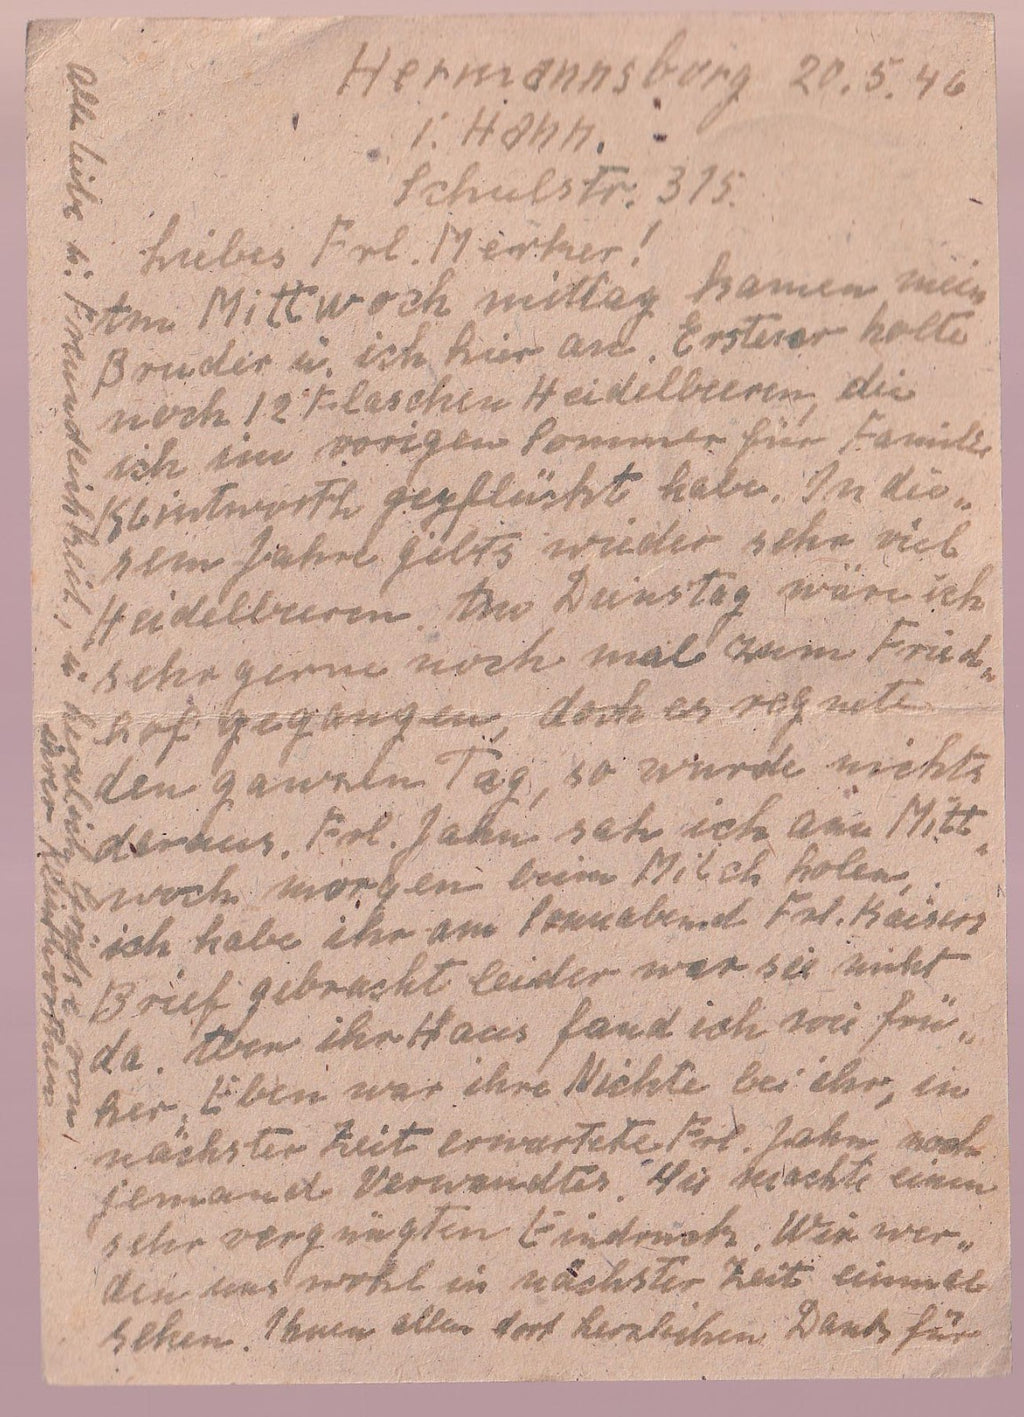 Hermannsburg 20.5.46
i. Hann.
Schulstr. 315.
Liebes Frl. Merker!
Am Mittwoch mittag kamen mein
Bruder u. ich hier an. Ersterer holte
noch 12 Flaschen Heidelbeeren, die
ich im vorigen Sommer für Familie
Klintworth gepflückt habe. In die„
sem Jahre gibts wieder sehr viel
Heidelbeeren. Am Dienstag wäre ich
sehr gerne noch mal zum Fried„
hof gegangen, doch es regnete
den ganzen Tag, so wurde nichts
daraus. Frl. Jahn sah ich am Mitt„
woch morgen beim Milch holen,
ich habe ihr am Sonnabend Frl. Kaisers
Brief gebracht leider war sie nicht
da. Aber ihr Haus fand ich wie frü„
her. Eben war ihre Nichte bei ihr, in
nächster Zeit erwartete Frl. Jahn noch
jemand Verwandtes. Sie machte einen
sehr vergnügten Eindruck. Wir wer„
den uns wohl in nächster Zeit einmal
sehen. Ihnen allen dort herzlichen Dank für
alle Liebe u. Freundlichkeit, u. herzlich Grüße von